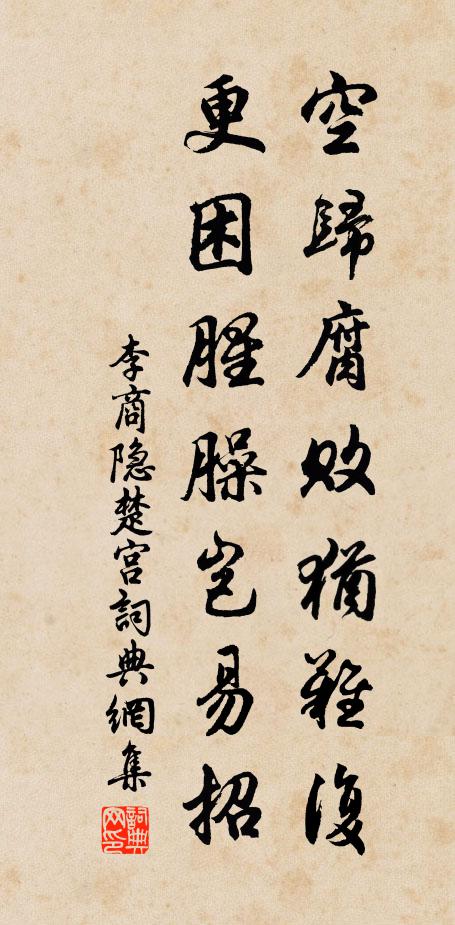 空歸腐敗猶難復
更困腥臊豈易招
李商隐楚宫詞典網集
詞典网印